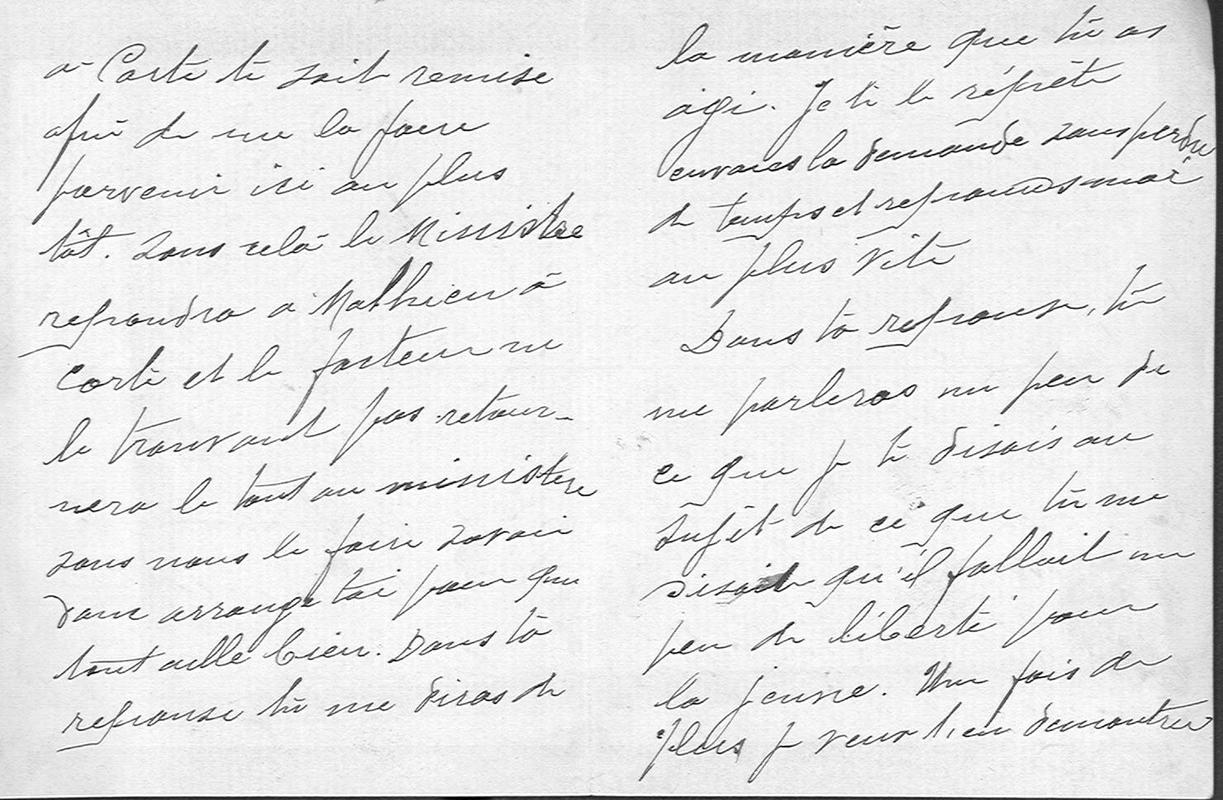 à Corte te soit remise
afin de me la faire
parvenir ici au plus
tôt. Sans cela le Ministre
repondra a Mathieu à
Corte et le facteur ne
le trouvant pas retour-
nera le tout au ministere
sans nous le faire savoir
donc arrange toi pour que
tout aille bien. Dans ta
reponse tu me diras de
la manière que tu as
agi. Je te le répète
envoies la demande sans perdre
de temps et reponds moi
au plus vite
Dans ta reponse, tu
me parleras un peu de
ce que je te disais au
sujet de ce que tu me
disait qu'il fallait un
peu de liberté pour
la jeune. Une fois de
plus je veux t'en demontrer